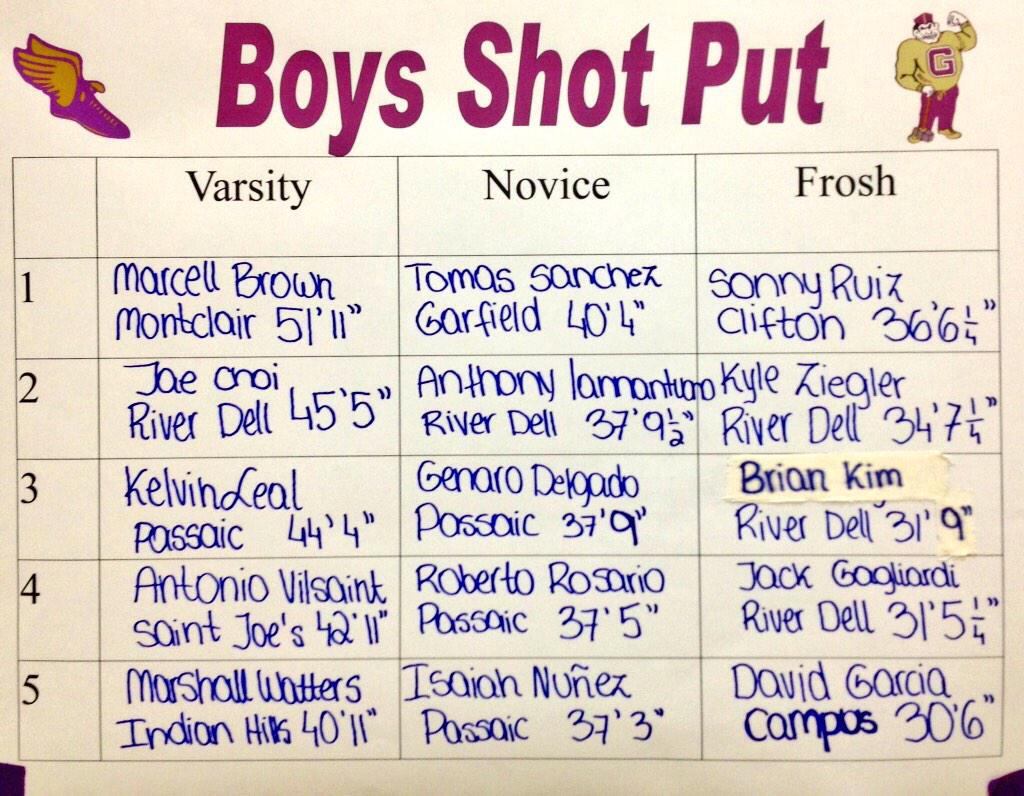 Boys Shot Put
G
Varsity Novice Frosh
1
Marcell Brown
Montclair 51'11"
Tomas Sanchez
Garfield 40'4"
Sonny Ruiz
Clifton 36'6¼"
2
Jae Choi
River Dell 45'5"
Anthony Iannantuono
River Dell 37'9½"
Kyle Ziegler
River Dell 34'7¼"
3
Kelvin Leal
Passaic 44'4"
Genaro Delgado
Passaic 37'9"
Brian Kim
River Dell 31'9"
4
Antonio Vilsaint
Saint Joe's 42'11"
Roberto Rosario
Passaic 37'5"
Jack Gagliardi
River Dell 31'5¼"
5
Marshall Watters
Indian Hills 40'11"
Isaiah Nuñez
Passaic 37'3"
David Garcia
Campus 30'6"